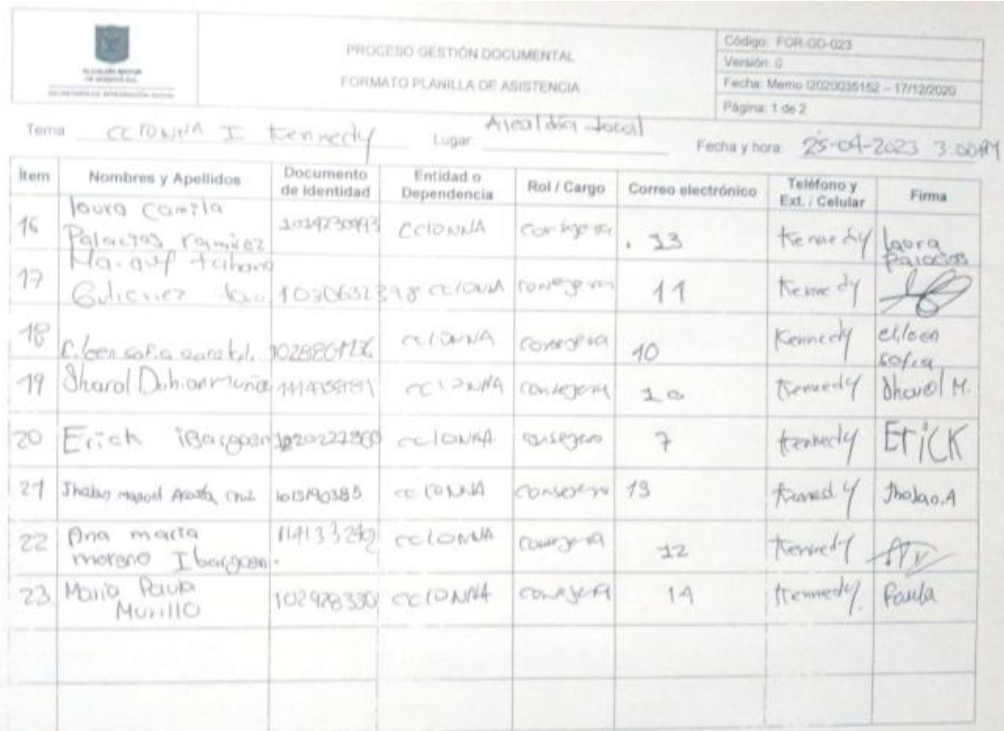 ALCALDÍA MAYOR
DE BOGOTÁ D.C.
SECRETARÍA DE INTEGRACIÓN SOCIAL
PROCESO GESTIÓN DOCUMENTAL
FORMATO PLANILLA DE ASISTENCIA
Código: FOR-GD-023
Versión: 0
Fecha: Memo I2020035152 – 17/12/2020
Página: 1 de 2
Tema CCIONNA I Kennedy Lugar Alcaldía Local Fecha y hora 25-04-2023 3:00PM
Ítem Nombres y Apellidos Documento de identidad Entidad o Dependencia Rol / Cargo Correo electrónico Teléfono y Ext. / Celular Firma
16 laura Camila Palacios ramirez CCIONNA consejera 13 Kennedy laura Palacios
17 Gutierrez 1030632398 CCIONNA consejera 11 Kennedy
18 sofia CCIONNA consejera 10 Kennedy eileen sofia
19 Sharol CCIONNA consejera 10 Kennedy Sharol M.
20 Erick ibargoen CCIONNA consegero 7 Kennedy ErICK
21 Manuel Acosta Cruz CCIONNA consejero 13 Kennedy
22 Ana maria moreno Ibargoen. CCIONNA consejera 12 Kennedy
23 Maria Paula Murillo 102928330 CCIONNA consejera 14 Kennedy. Paula